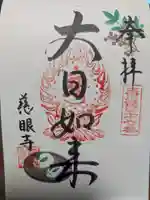 奉拝
大日如来
慈眼寺